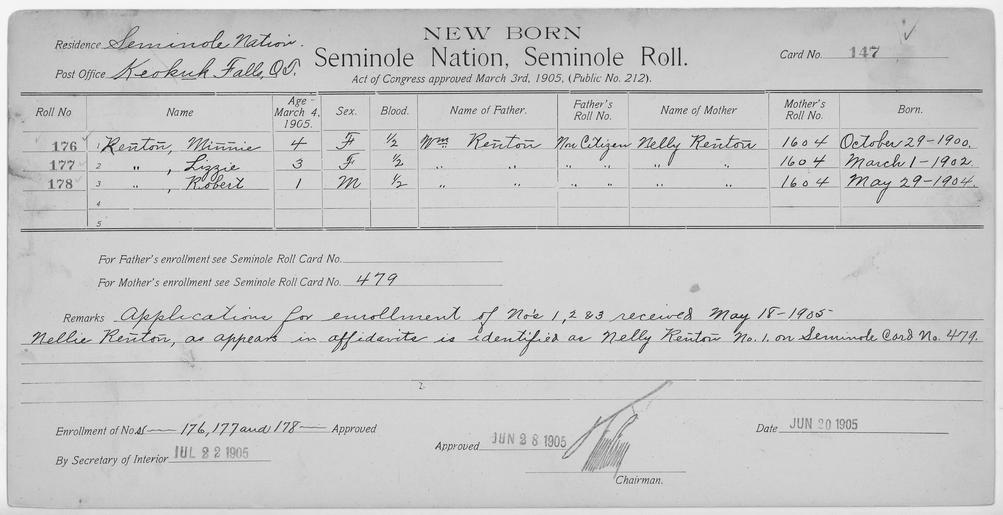 NEW BORN
Seminole Nation, Seminole Roll.
Act of Congress approved March 3rd, 1905, (Public No. 212).
Residence Seminole Nation.
Post Office Keokuk Falls, O.T.
Card No. 147
Roll No Name Age - March 4, 1905. Sex. Blood. Name of Father. Father's Roll No. Name of Mother Mother's Roll No. Born.
176 1 Renton, Minnie 4 F ½ Wm Renton Non Citizen Nelly Renton 1604 October 29-1900.
177 2 " , Lizzie 3 F ½ " " " " " " 1604 March 1-1902.
178 3 " , Robert 1 M ½ " " " " " " 1604 May 29-1904.
4
5
For Father's enrollment see Seminole Roll Card No.
For Mother's enrollment see Seminole Roll Card No. 479
Remarks Applications for enrollment of Nos 1, 2 & 3 received May 18-1905-
Nellie Renton, as appears in affidavits is identified as Nelly Renton No. 1. on Seminole Card No. 479.
Enrollment of No.s — 176, 177 and 178 — Approved
By Secretary of Interior JUL 22 1905
Approved JUN 28 1905
Chairman.
Date JUN 20 1905